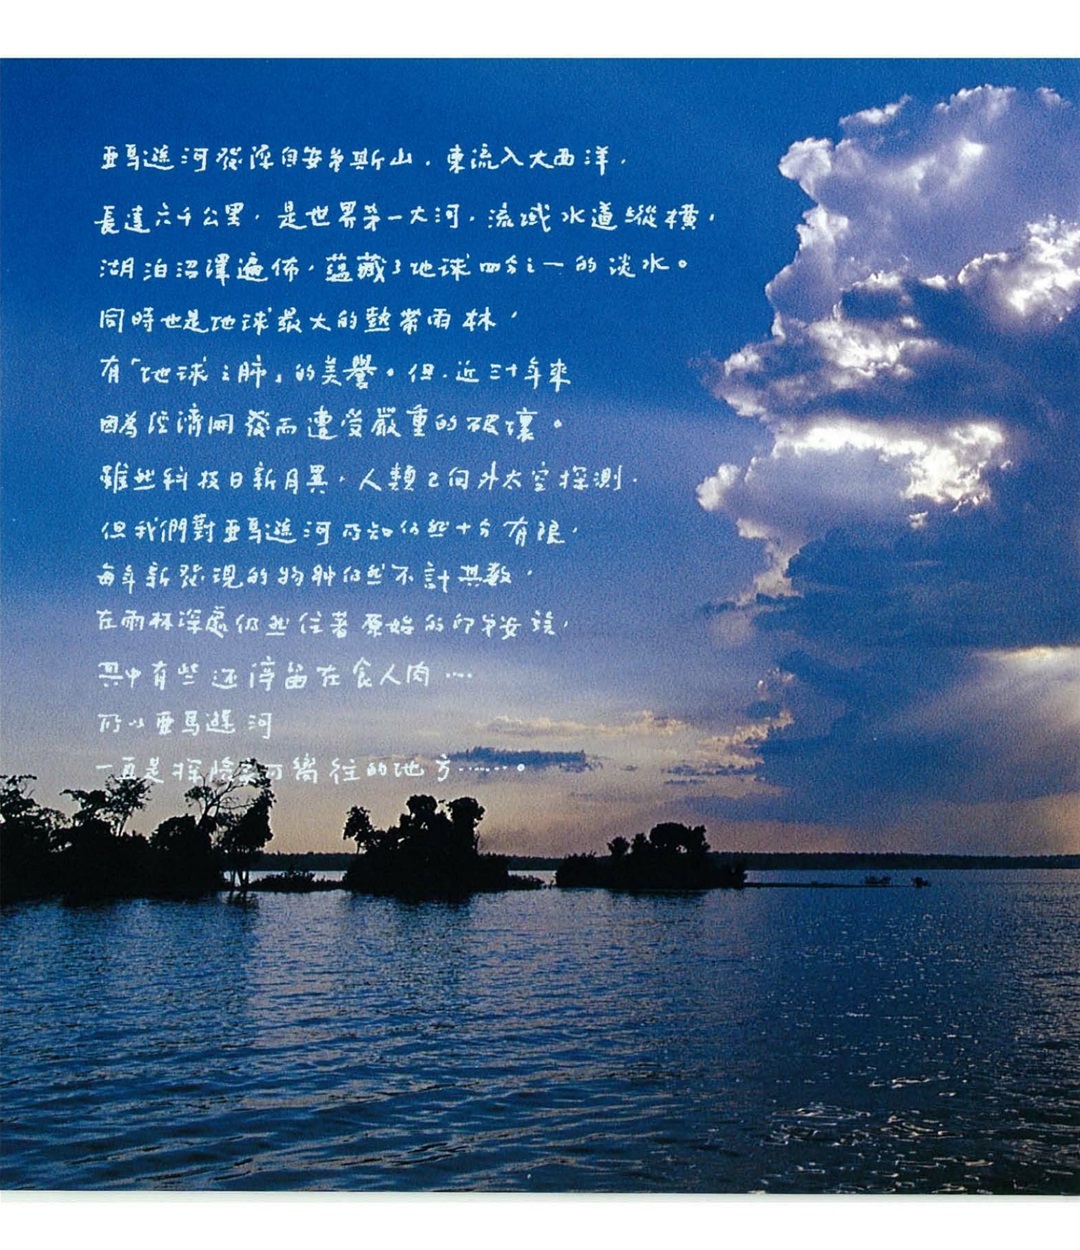 亞馬遜河發源自安第斯山，東流入大西洋，
長達六千公里，是世界第一大河，流域水道縱橫，
湖泊沼澤遍佈，蘊藏了地球四分之一的淡水。
同時也是地球最大的熱帶雨林，
有「地球之肺」的美譽。但，近三十年來
因為經濟開發而遭受嚴重的破壞。
雖然科技日新月異，人類已向外太空探測，
但我們對亞馬遜河所知仍然十分有限，
每年新發現的物種仍然不計其數，
在雨林深處仍然住著原始的印第安族，
其中有些還停留在食人肉…
所以亞馬遜河
一直是探險家所嚮往的地方……。